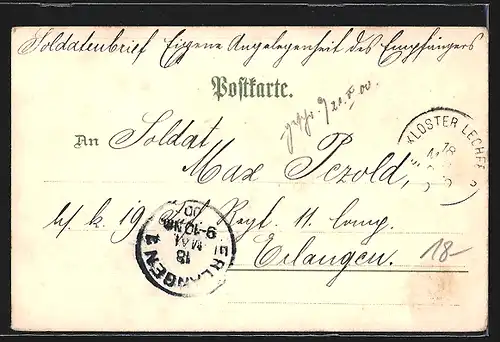 Soldatenbrief Eigene Angelegenheit des Empfängers
Postkarte.
20. V 00
An Soldat
Max Pezold,
KLOSTER LECHFE
18
19. Inf. Regt. 11. Comp.
Erlangen.
18-
ERLANGEN 1
18
MAI
9-10 NM
00